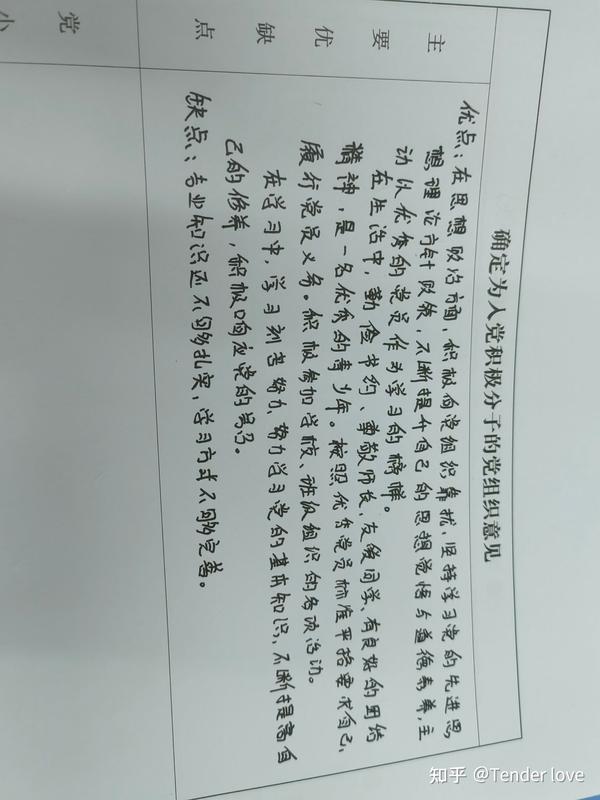 确定为入党积极分子的党组织意见
主要优缺点
优点：在思想政治方面，积极向党组织靠拢，坚持学习党的先进思
想理论方针政策，不断提升自己的思想觉悟与道德素养，主
动以优秀的党员作为学习的榜样。
在生活中，勤俭节约、尊敬师长，友爱同学、有良好的团结
精神，是一名优秀的青少年。按照优秀党员标准严格要求自己，
履行党员义务。积极参加学校、班级组织的各项活动。
在学习中，学习刻苦努力，努力学习党的基本知识，不断提高自
己的修养，积极响应党的号召。
缺点：专业知识还不够扎实，学习方式不够完善。
党
小
知乎 @Tender love